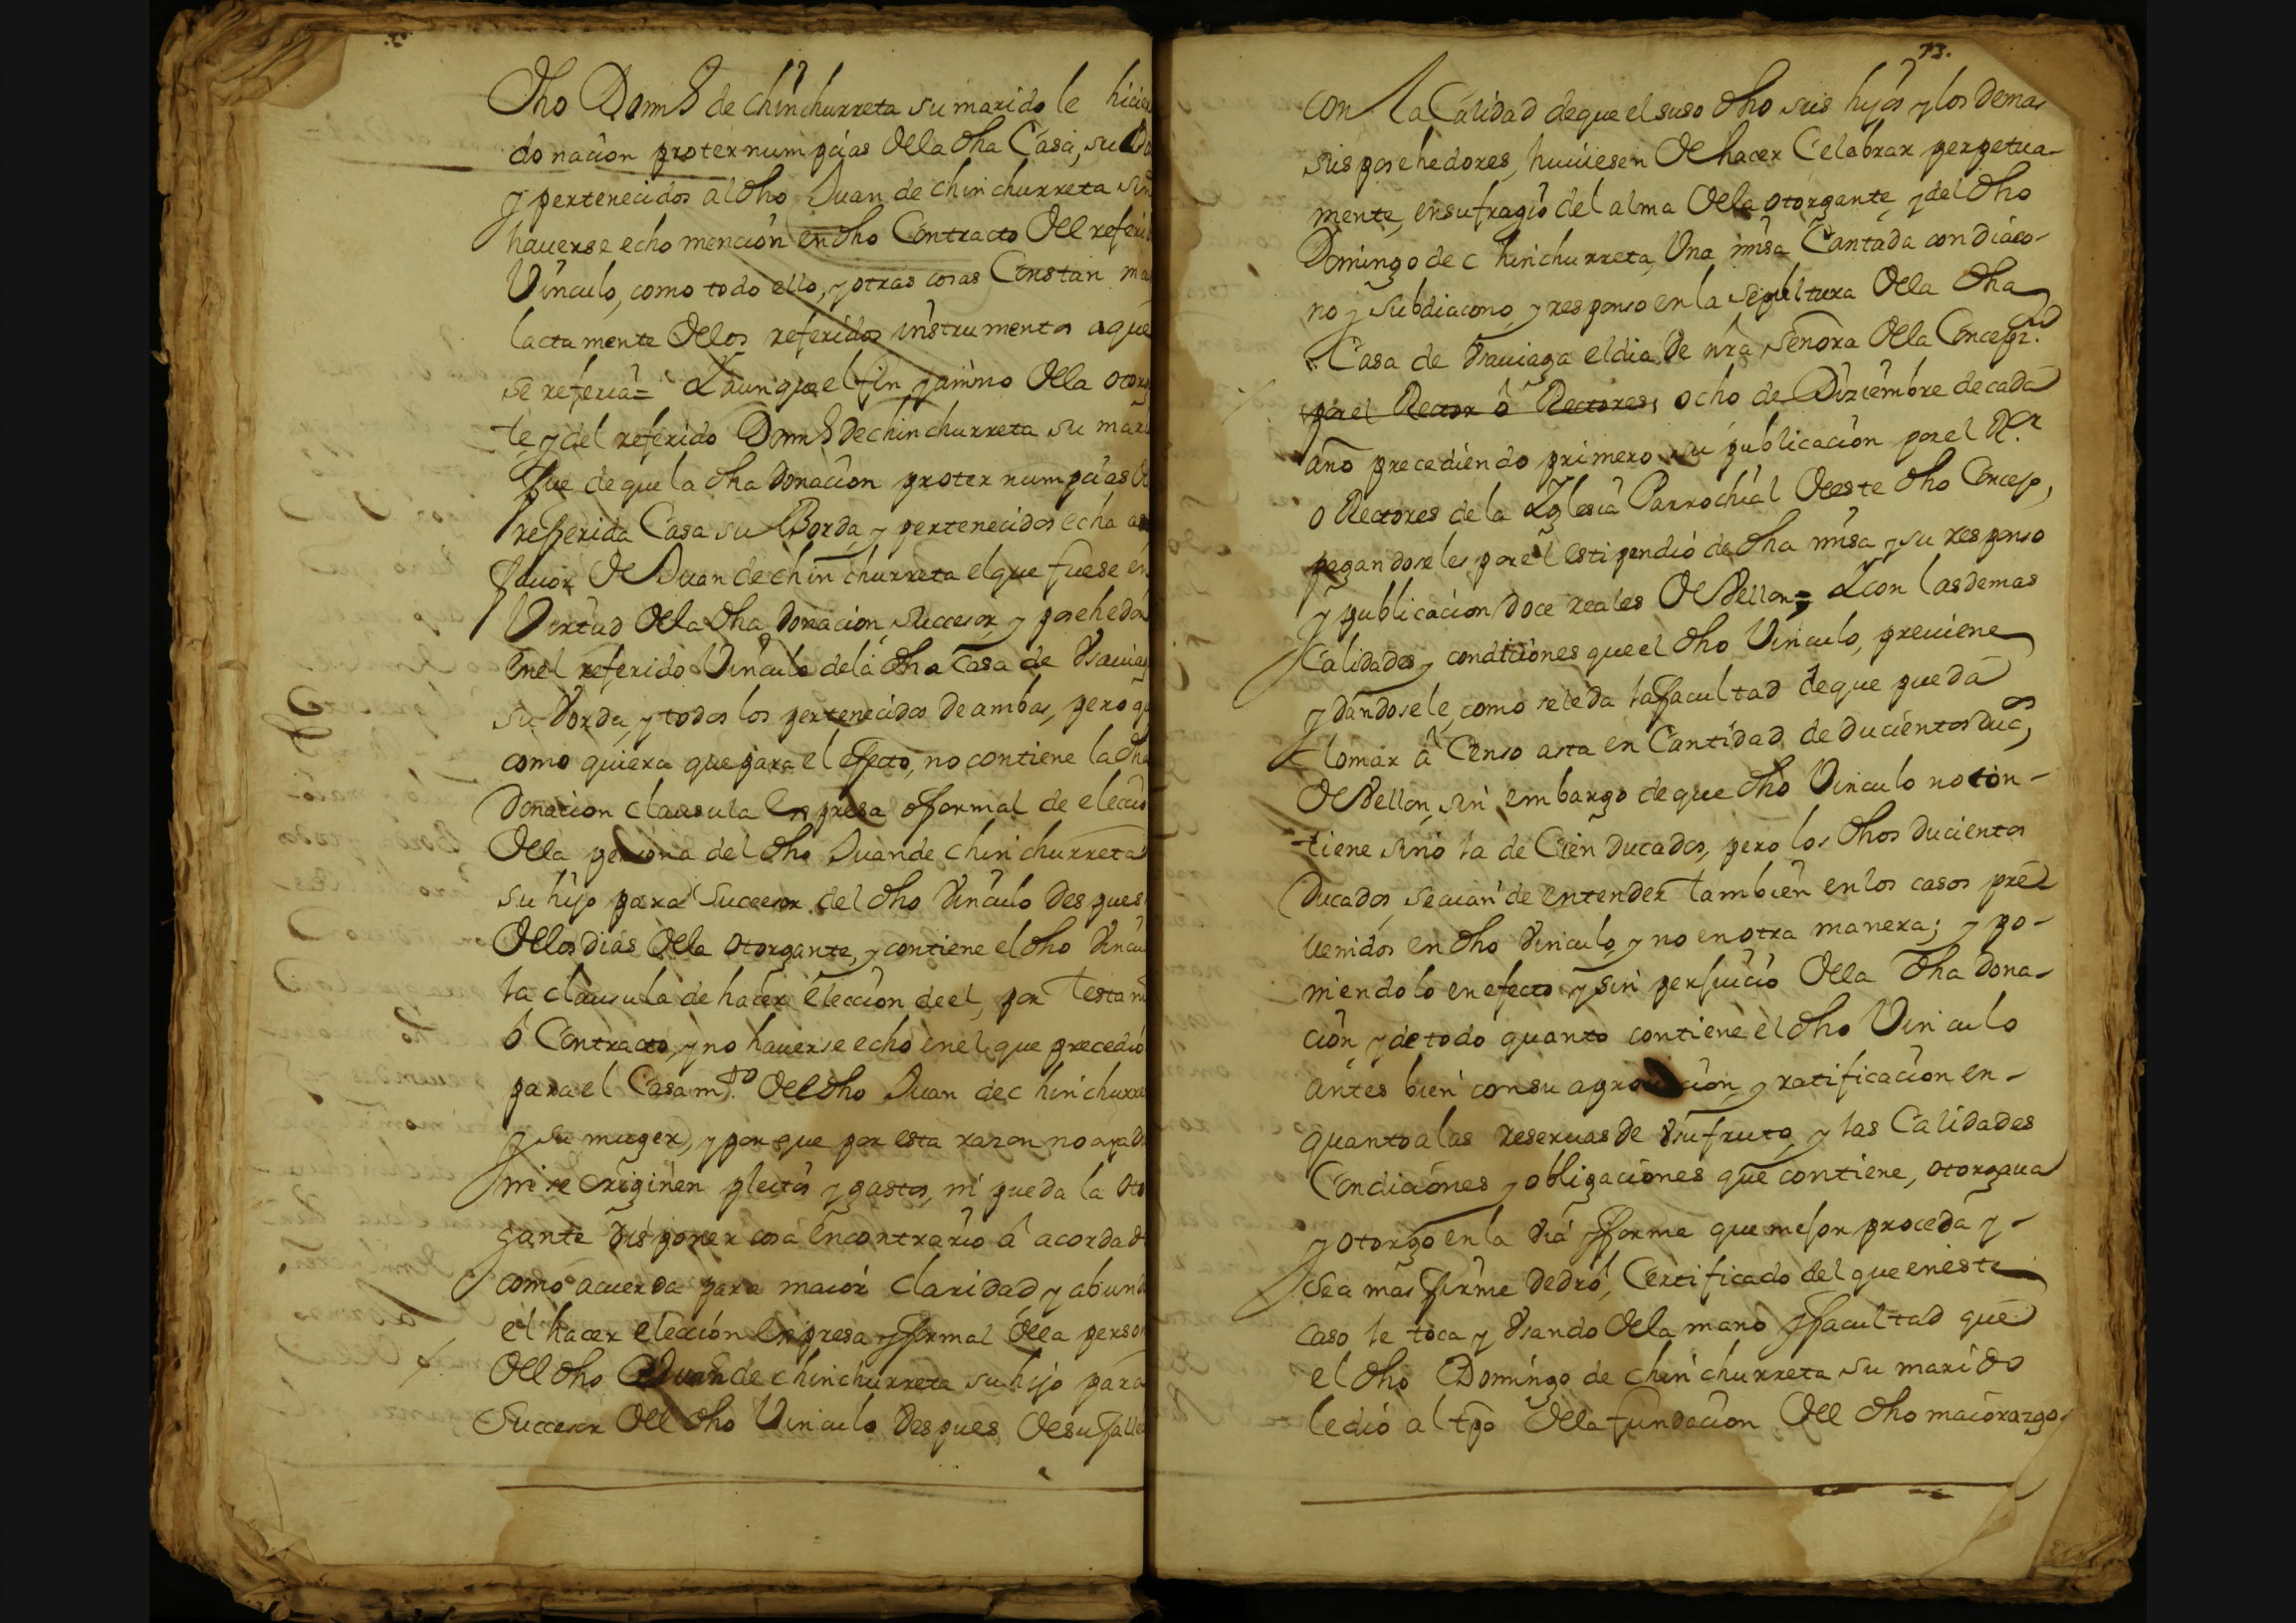 dho Domin.º de chinchurreta su marido le hicier
donacion propter numpçias della dha Casa, su Bo
y pertenecidos al dho Juan de chinchurreta sin
hauerse echo mencion en dho Contracto del referid
Vinculo, como todo ello, y otras cosas Constan ma
lactamente dellos referidos instrumentos a que
se referia = Y aunque el fin y animo della otorg
te y del referido Domin.º de chinchurreta su mari
fue de que la dha donacion propter numpçias de
referida Casa su Borda, y pertenecidos echa a
fauor de Juan de chinchurreta el que fuese en
Virtud della dha donacion, Succesor y posehedor
en el referido Vinculo de la dha Casa de Vsauiag
su Vorda, y todos los pertenecidos de ambas, pero q
como quiera que para el efecto, no contiene la dha
donacion clausula Expresa o formal de elecció
della persona del dho Juan de chinchurreta
su hijo para Succesor del dho Vinculo despues
dellos dias della otorgante, y contiene el dho Vincu
la clausula de hacer elección de el, por Testam
ó Contracto, y no hauerse echo en el que precedió
para el Casam.to del dho Juan de chinchurre
y su muger, y por que por esta razon no aya d
ni se originen pleitos y gastos, ni pueda la oto
gante disponer cosa en contrario á acordad
como acuerda para maior claridad, y abund
el hacer elección Expresa y formal della person
del dho Juan de chinchurreta su hijo para
Succesor del dho Vinculo despues de su falle
73.
con la Calidad de que el suso dho sus hijos y los demas
sus posehedores, huuiesen de hacer Celabrar perpetua-
mente, en sufragio del alma della otorgante, y del dho
Domingo de chinchurreta, Vna missa Cantada con diaco-
no y subdiacono, y responso en la sepultura della dha
Casa de Vsauiaga el dia de nra señora della Concepz.on
por el Rector ó Rectores, ocho de Diziembre de cada
año precediendo primero su publicacion por el R.or
o Rectores de la Yglesia Parrochial deeste dho Concejo,
pagandoseles por el estipendió de dha missa y su responso
y publicacion doce reales de Vellon = Y con las demas
Calidades y condiciones que el dho Vinculo, preuiene
y dandosele, como se le da la facultad de que pueda
tomar á Censo asta en Cantidad de ducientos duc.s
de Vellon, sin embargo de que dho Vinculo no con-
tiene sino la de Cien ducados, pero los dhos ducientos
Ducados, se auian de entender tambien en los casos pre-
uenidos en dho Vinculo, y no en otra manera; y po-
niendolo en efecto y sin perjuicio della dha dona-
ción y de todo quanto contiene el dho Vinculo
antes bien con su aprouacion, y ratificacion en-
quanto a las reseruas de Vsufruto, y las Calidades
Condiciones y obligaciones que contiene, otorgaua
y otorgó en la via y forma que mejor proceda y
sea mas firme de dró, Certificado del que en este
caso le toca y vsando della mano y facultad que
el dho Domingo de chinchurreta su marido
le dió al tpo della fundacion del dho maiorazgo